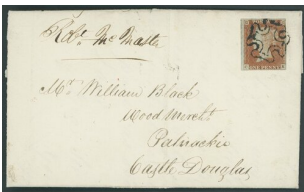 Robt. McMaster
Mr. William Black
Wood Mercht.
Palnackie
Castle Douglas
ONE PENNY